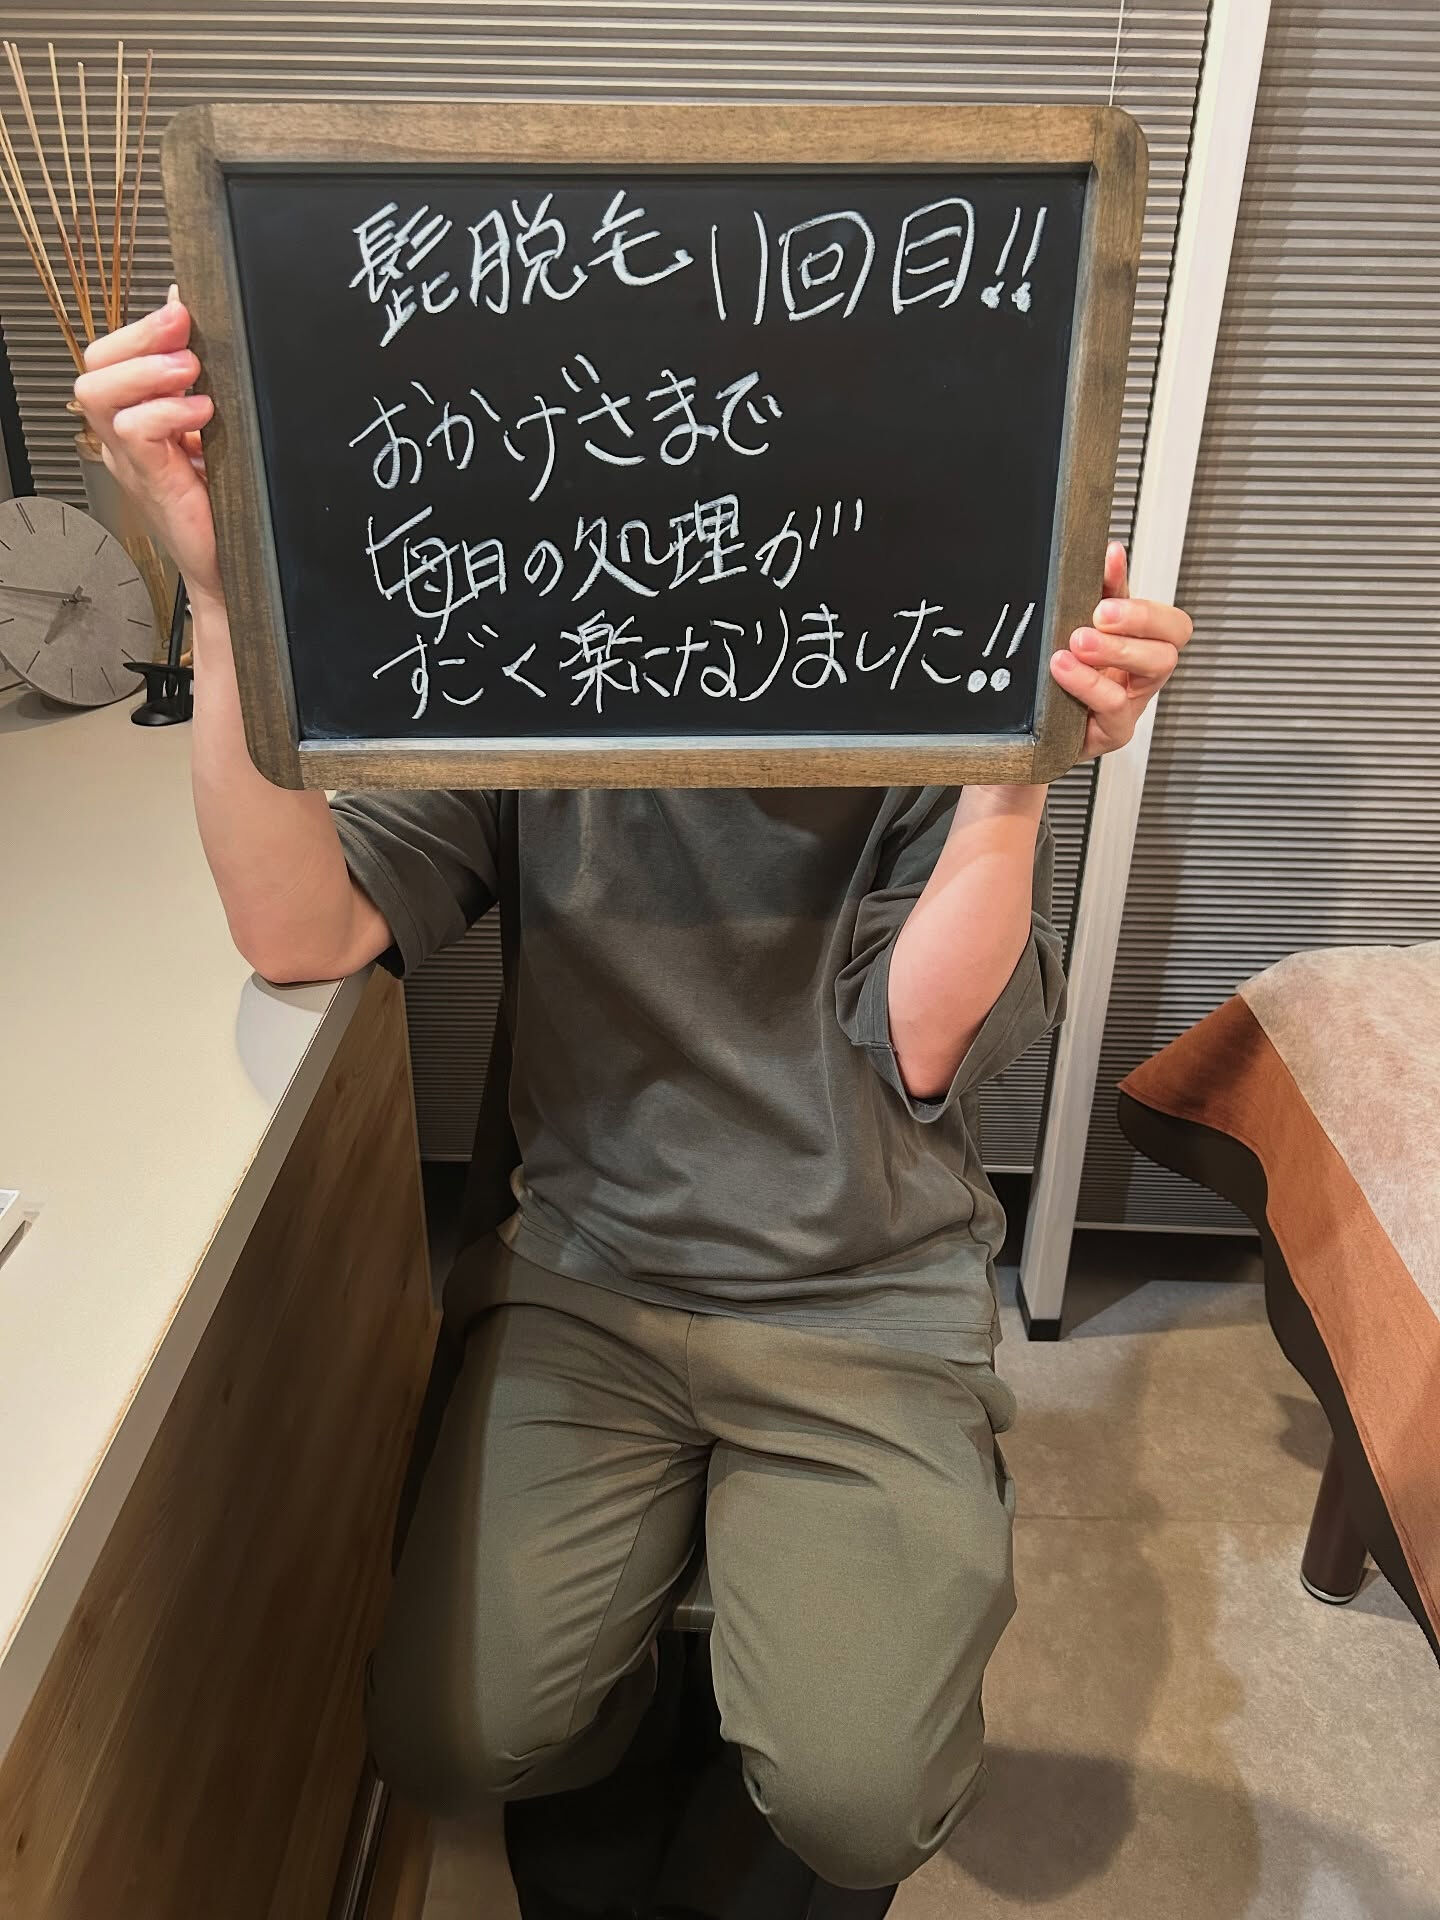 髭脱毛 11回目!!
おかげさまで
毎日の処理が
すごく楽になりました!!